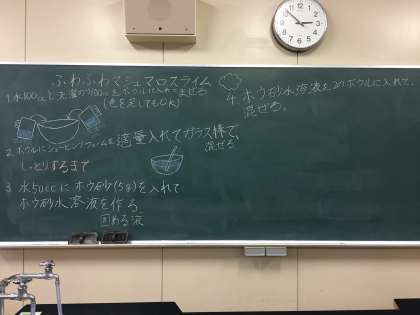 ふわふわマシュマロスライム
1.水100ccと洗濯のり100ccをボウルに入れてまぜる
(色を足してもOK)
2.ボウルにシェービングフォームを適量入れてガラス棒で、
混ぜる
しっとりするまで
3 水50ccにホウ砂(5g)を入れて
ホウ砂水溶液を作る
固める液
4.ホウ砂水溶液を2のボウルに入れて、
混ぜる。